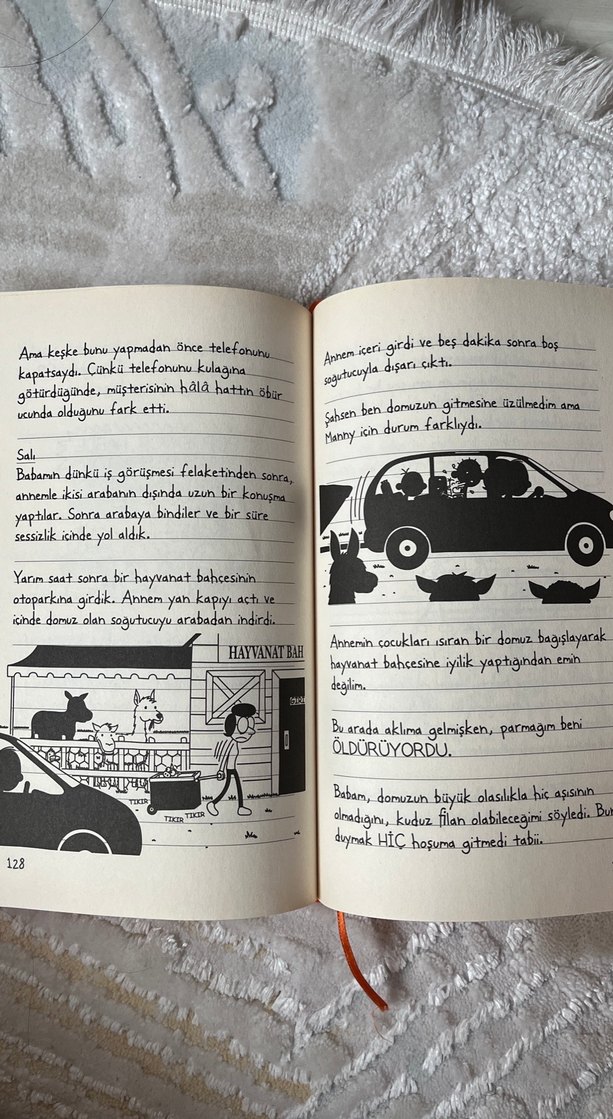 Ama keşke bunu yapmadan önce telefonunu
kapatsaydı. Çünkü telefonunu kulağına
götürdüğünde, müşterisinin hâlâ hattın öbür
ucunda olduğunu fark etti.
Salı
Babamın dünkü iş görüşmesi felaketinden sonra,
annemle ikisi arabanın dışında uzun bir konuşma
yaptılar. Sonra arabaya bindiler ve bir süre
sessizlik içinde yol aldık.
Yarım saat sonra bir hayvanat bahçesinin
otoparkına girdik. Annem yan kapıyı açtı ve
içinde domuz olan soğutucuyu arabadan indirdi.
HAYVANAT BAH
TIKIR
TIKIR
TIKIR
128
Annem içeri girdi ve beş dakika sonra boş
soğutucuyla dışarı çıktı.
Şahsen ben domuzun gitmesine üzülmedim ama
Manny için durum farklıydı.
Annemin çocukları ısıran bir domuz bağışlayarak
hayvanat bahçesine iyilik yaptığından emin
değilim.
Bu arada aklıma gelmişken, parmağım beni
ÖLDÜRÜYORDU.
Babam, domuzun büyük olasılıkla hiç aşısının
olmadığını, kuduz filan olabileceğimi söyledi. Bun
duymak HİÇ hoşuma gitmedi tabii.